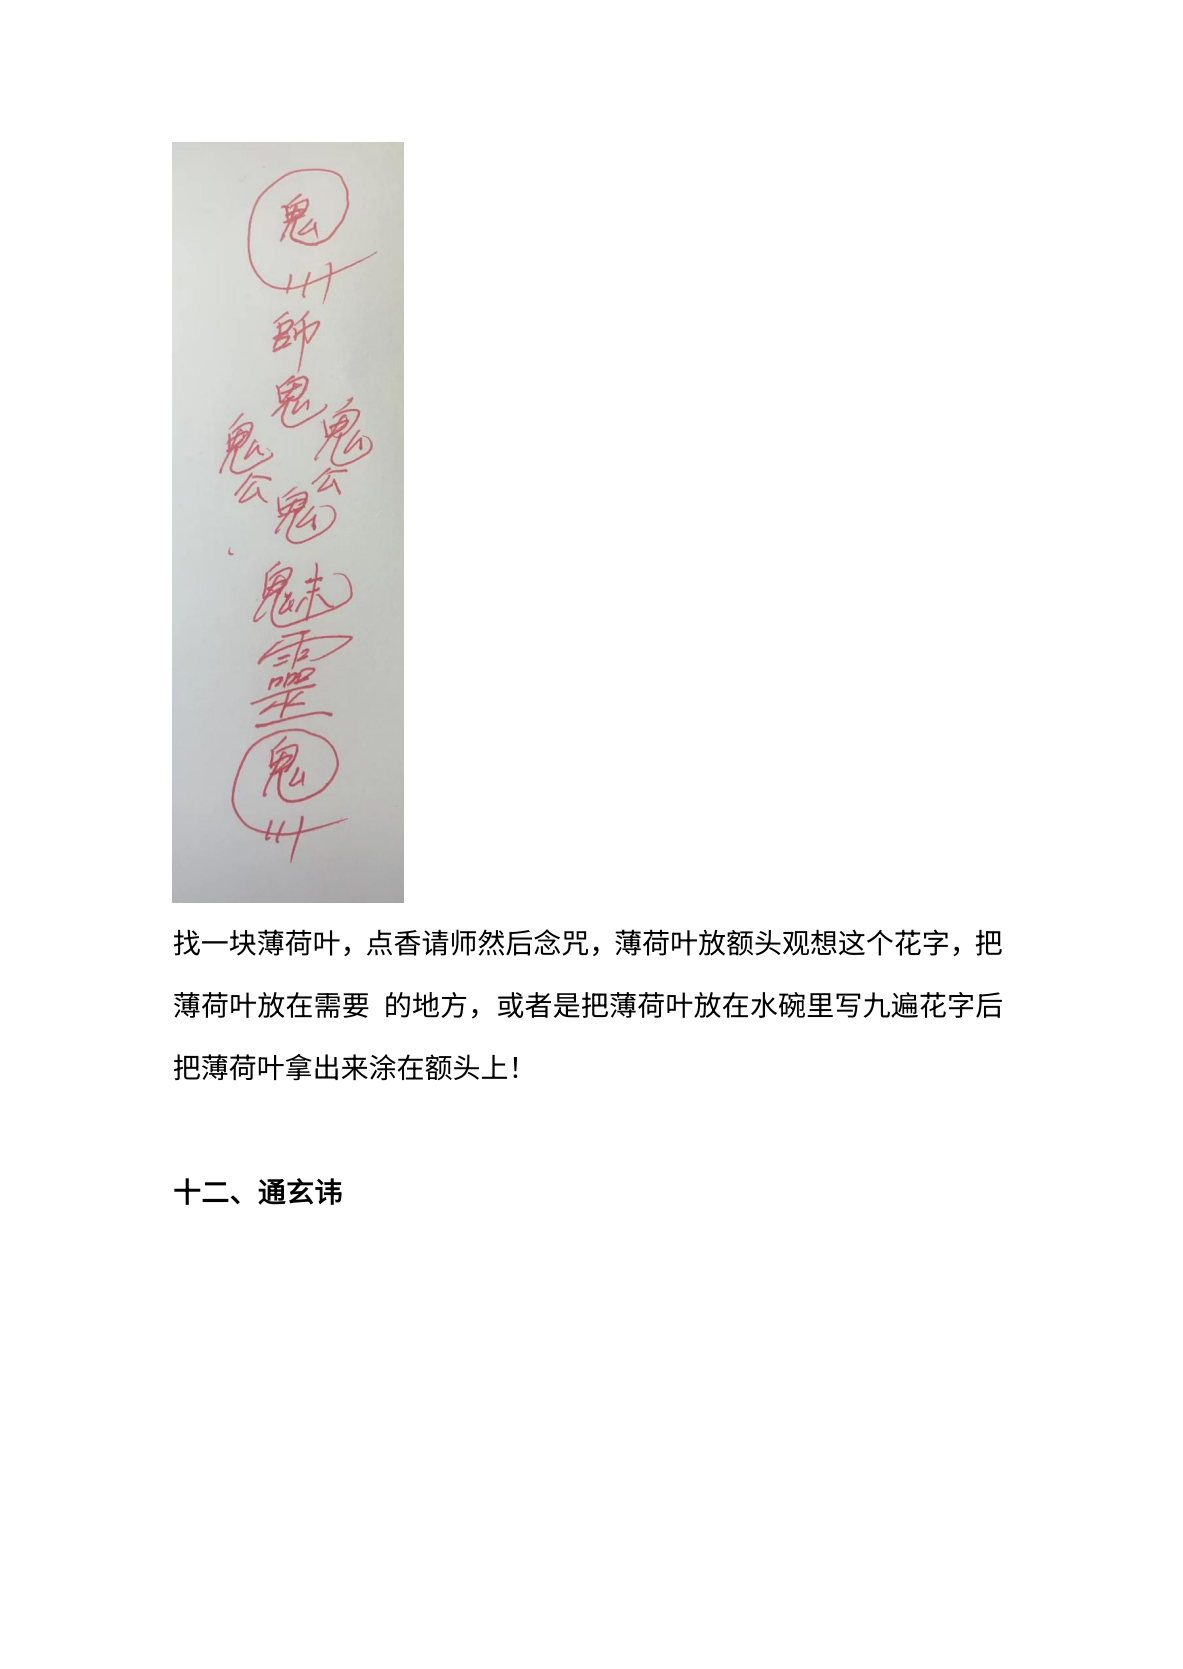 鬼
師
鬼
鬼 鬼
公 公
鬼
魅
靈
鬼
找一块薄荷叶，点香请师然后念咒，薄荷叶放额头观想这个花字，把
薄荷叶放在需要 的地方，或者是把薄荷叶放在水碗里写九遍花字后
把薄荷叶拿出来涂在额头上！
十二、通玄讳